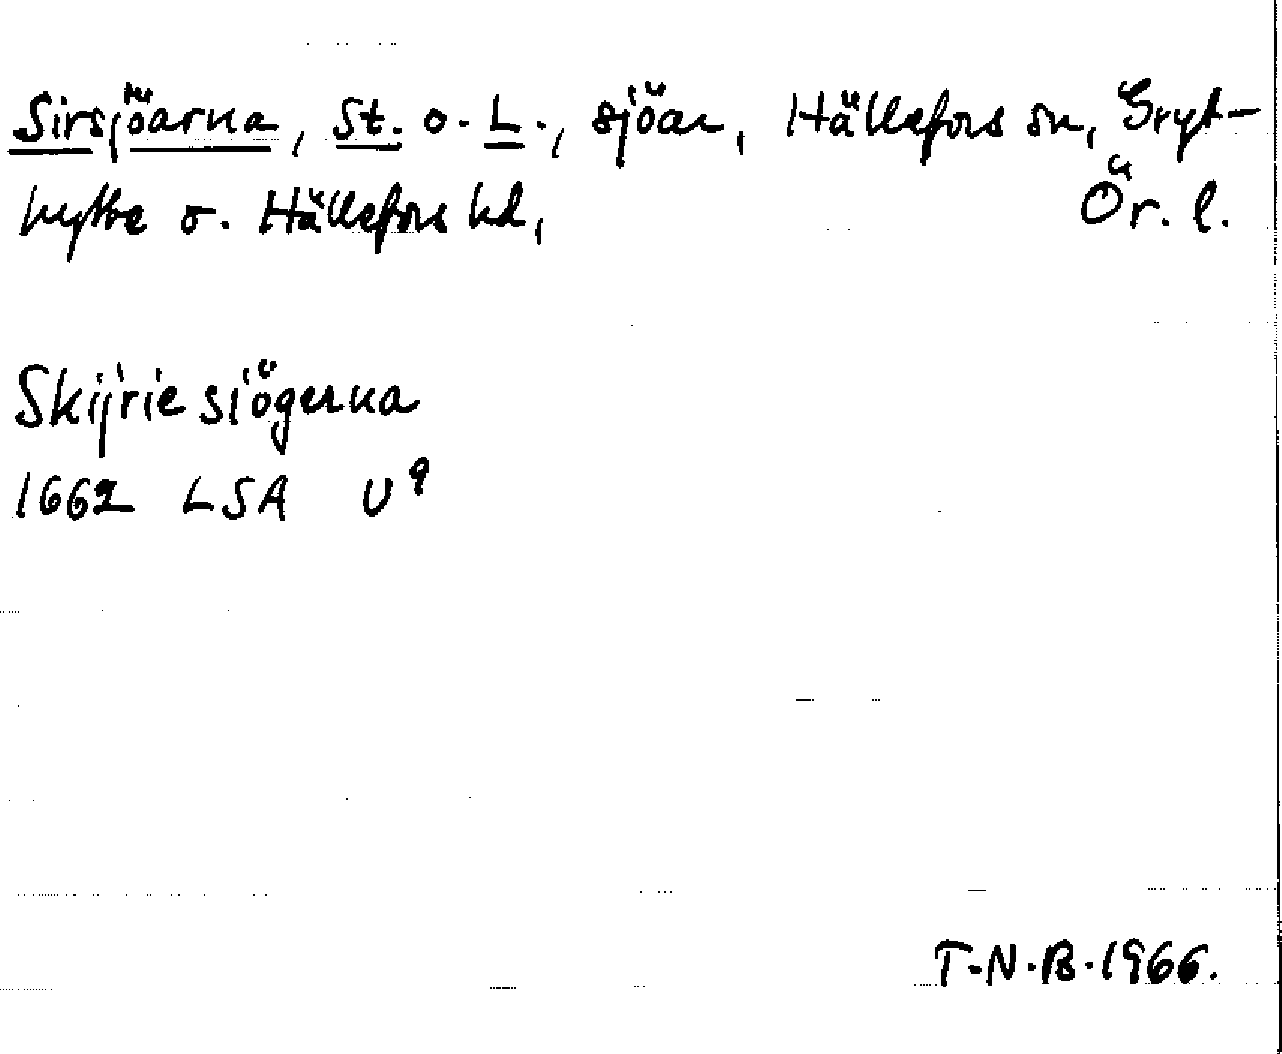 Sirsjöarna, St. o. L., sjöar, Hällefors sn, Gryt-
hytte o. Hällefors hd, Ör. l.
Skijrie siögerna
1662 LSA U⁹
T.N.B. 1966.